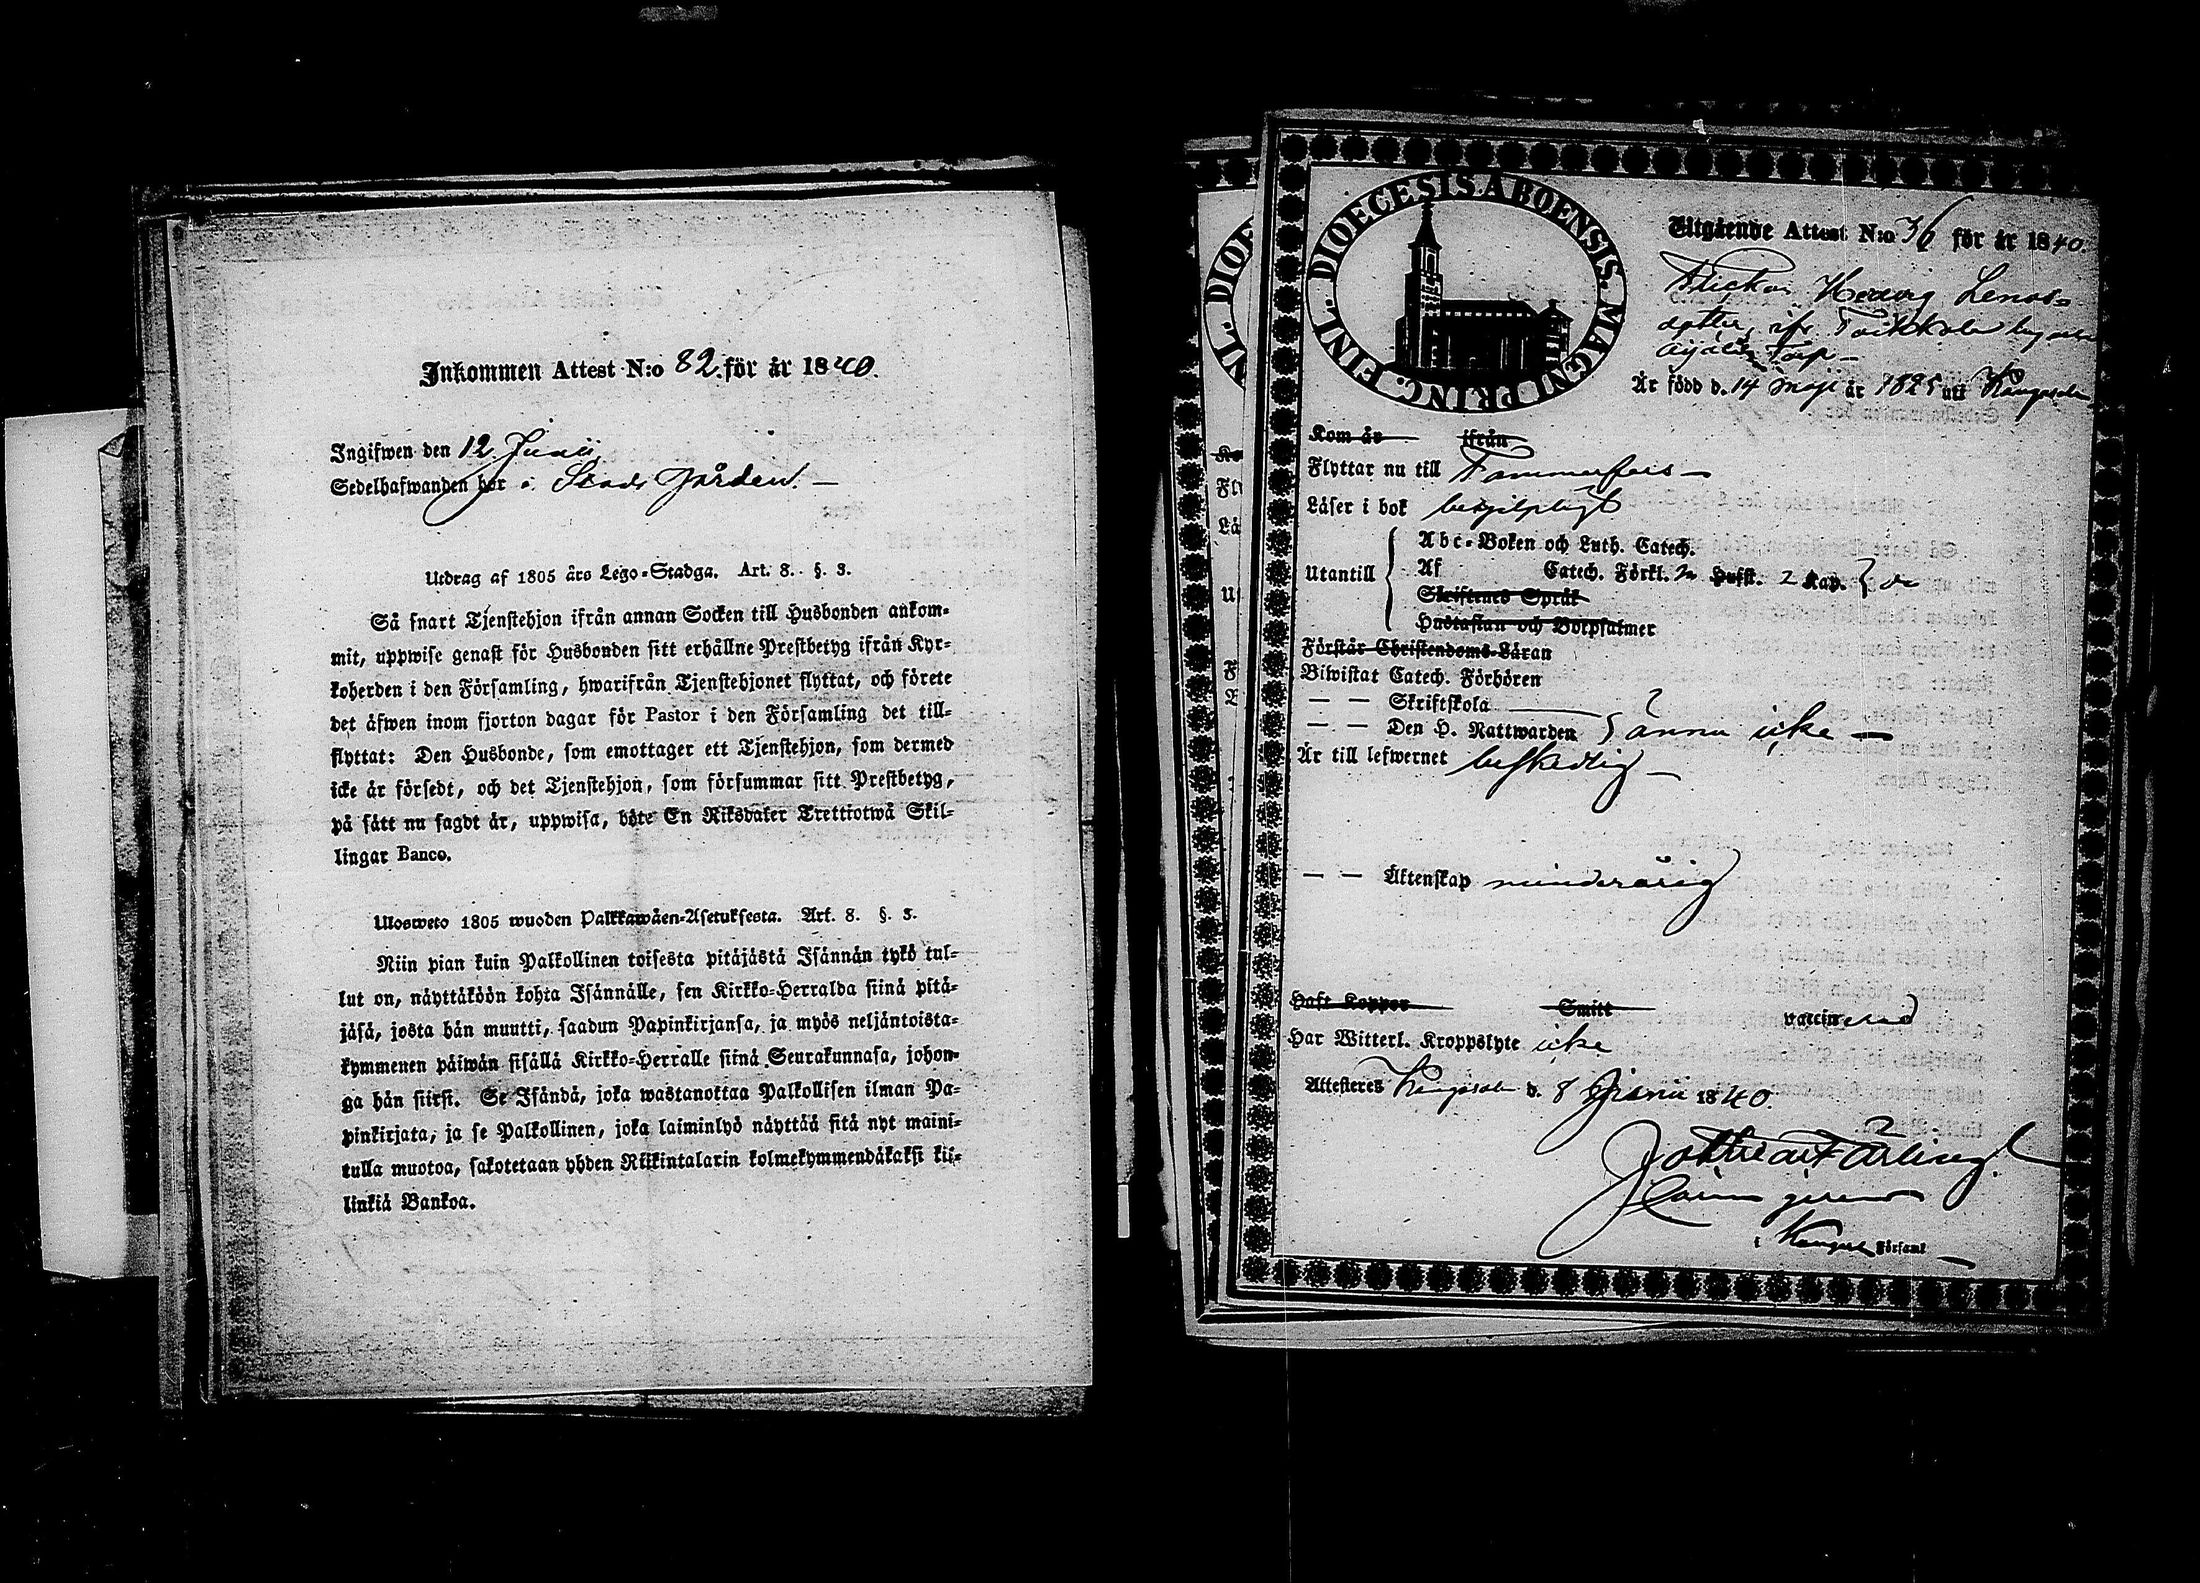 Inkommen Attest N:o 82. för år 1840.
Ingifwen den 12 Junii
Sedelhafwanden bor i Stads Gården. —
Utdrag af 1805 års Lego-Stadga. Art. 8. §. 3.
Så snart Tjenstehjon ifrån annan Socken till Husbonden ankom-
mit, uppwise genast för Husbonden sitt erhållne Prestbetyg ifrån Kyr-
koherden i den Församling, hwarifrån Tjenstehjonet flyttat, och förete
det äfwen inom fjorton dagar för Pastor i den Församling det till-
flyttat: Den Husbonde, som emottager ett Tjenstehjon, som dermed
icke är försedt, och det Tjenstehjon, som försummar sitt Prestbetyg,
på sätt nu sagdt är, uppwisa, böte En Riksdaler Trettiotwå Skil-
lingar Banco.
Ulosweto 1805 wuoden Palkkawäen-Asetuksesta. Art. 8. §. 3.
Niin pian kuin Palkollinen toisesta pitäjästä Isännän tykö tul-
lut on, näyttäköön kohta Isännälle, sen Kirkko-Herralda siinä pitä-
jäsä, josta hän muutti, saadun Papinkirjansa, ja myös neljäntoista-
kymmenen päiwän sisällä Kirkko-Herralle siinä Seurakunnasa, johon-
ga hän siirsi. Se Isändä, joka wastanottaa Palkollisen ilman Pa-
pinkirjata, ja se Palkollinen, joka laiminlyö näyttää sitä nyt maini-
tulla muotoa, sakotetaan yhden Riikintalarin kolmekymmendäkaksi kii-
linkiä Bankoa.
FINL. DIOECESIS ABOENSIS. MAGNI PRINC.
Utgående Attest N:o 36 för år 1840.
Flickan Hedvig Lenas-
dotter, ifr. Toikkola by
Äijälä Torp —
Är född d. 14 Maji år 1825 uti Kangasala
Kom år ifrån
Flyttar nu till Tammerfors —
Läser i bok behjelpligt
Utantill
Abc-Boken och Luth. Catech.
Af Catech. Förkl. Hufst. 2 Kap.
Skriftenes Språk
Hustaflan och Botpsalmer
Förstår Christendoms-Läran
Biwistat Catech. Förhören
— — Skriftskola
— — Den H. Nattwarden ännu icke —
Är till lefwernet beskedlig —
— — Äktenskap minderårig
Haft Koppor Smitt vaccinerad
Har Witterl. Kroppslyte icke
Attesteres Kangasala d. 8 Junii 1840.
i Församl